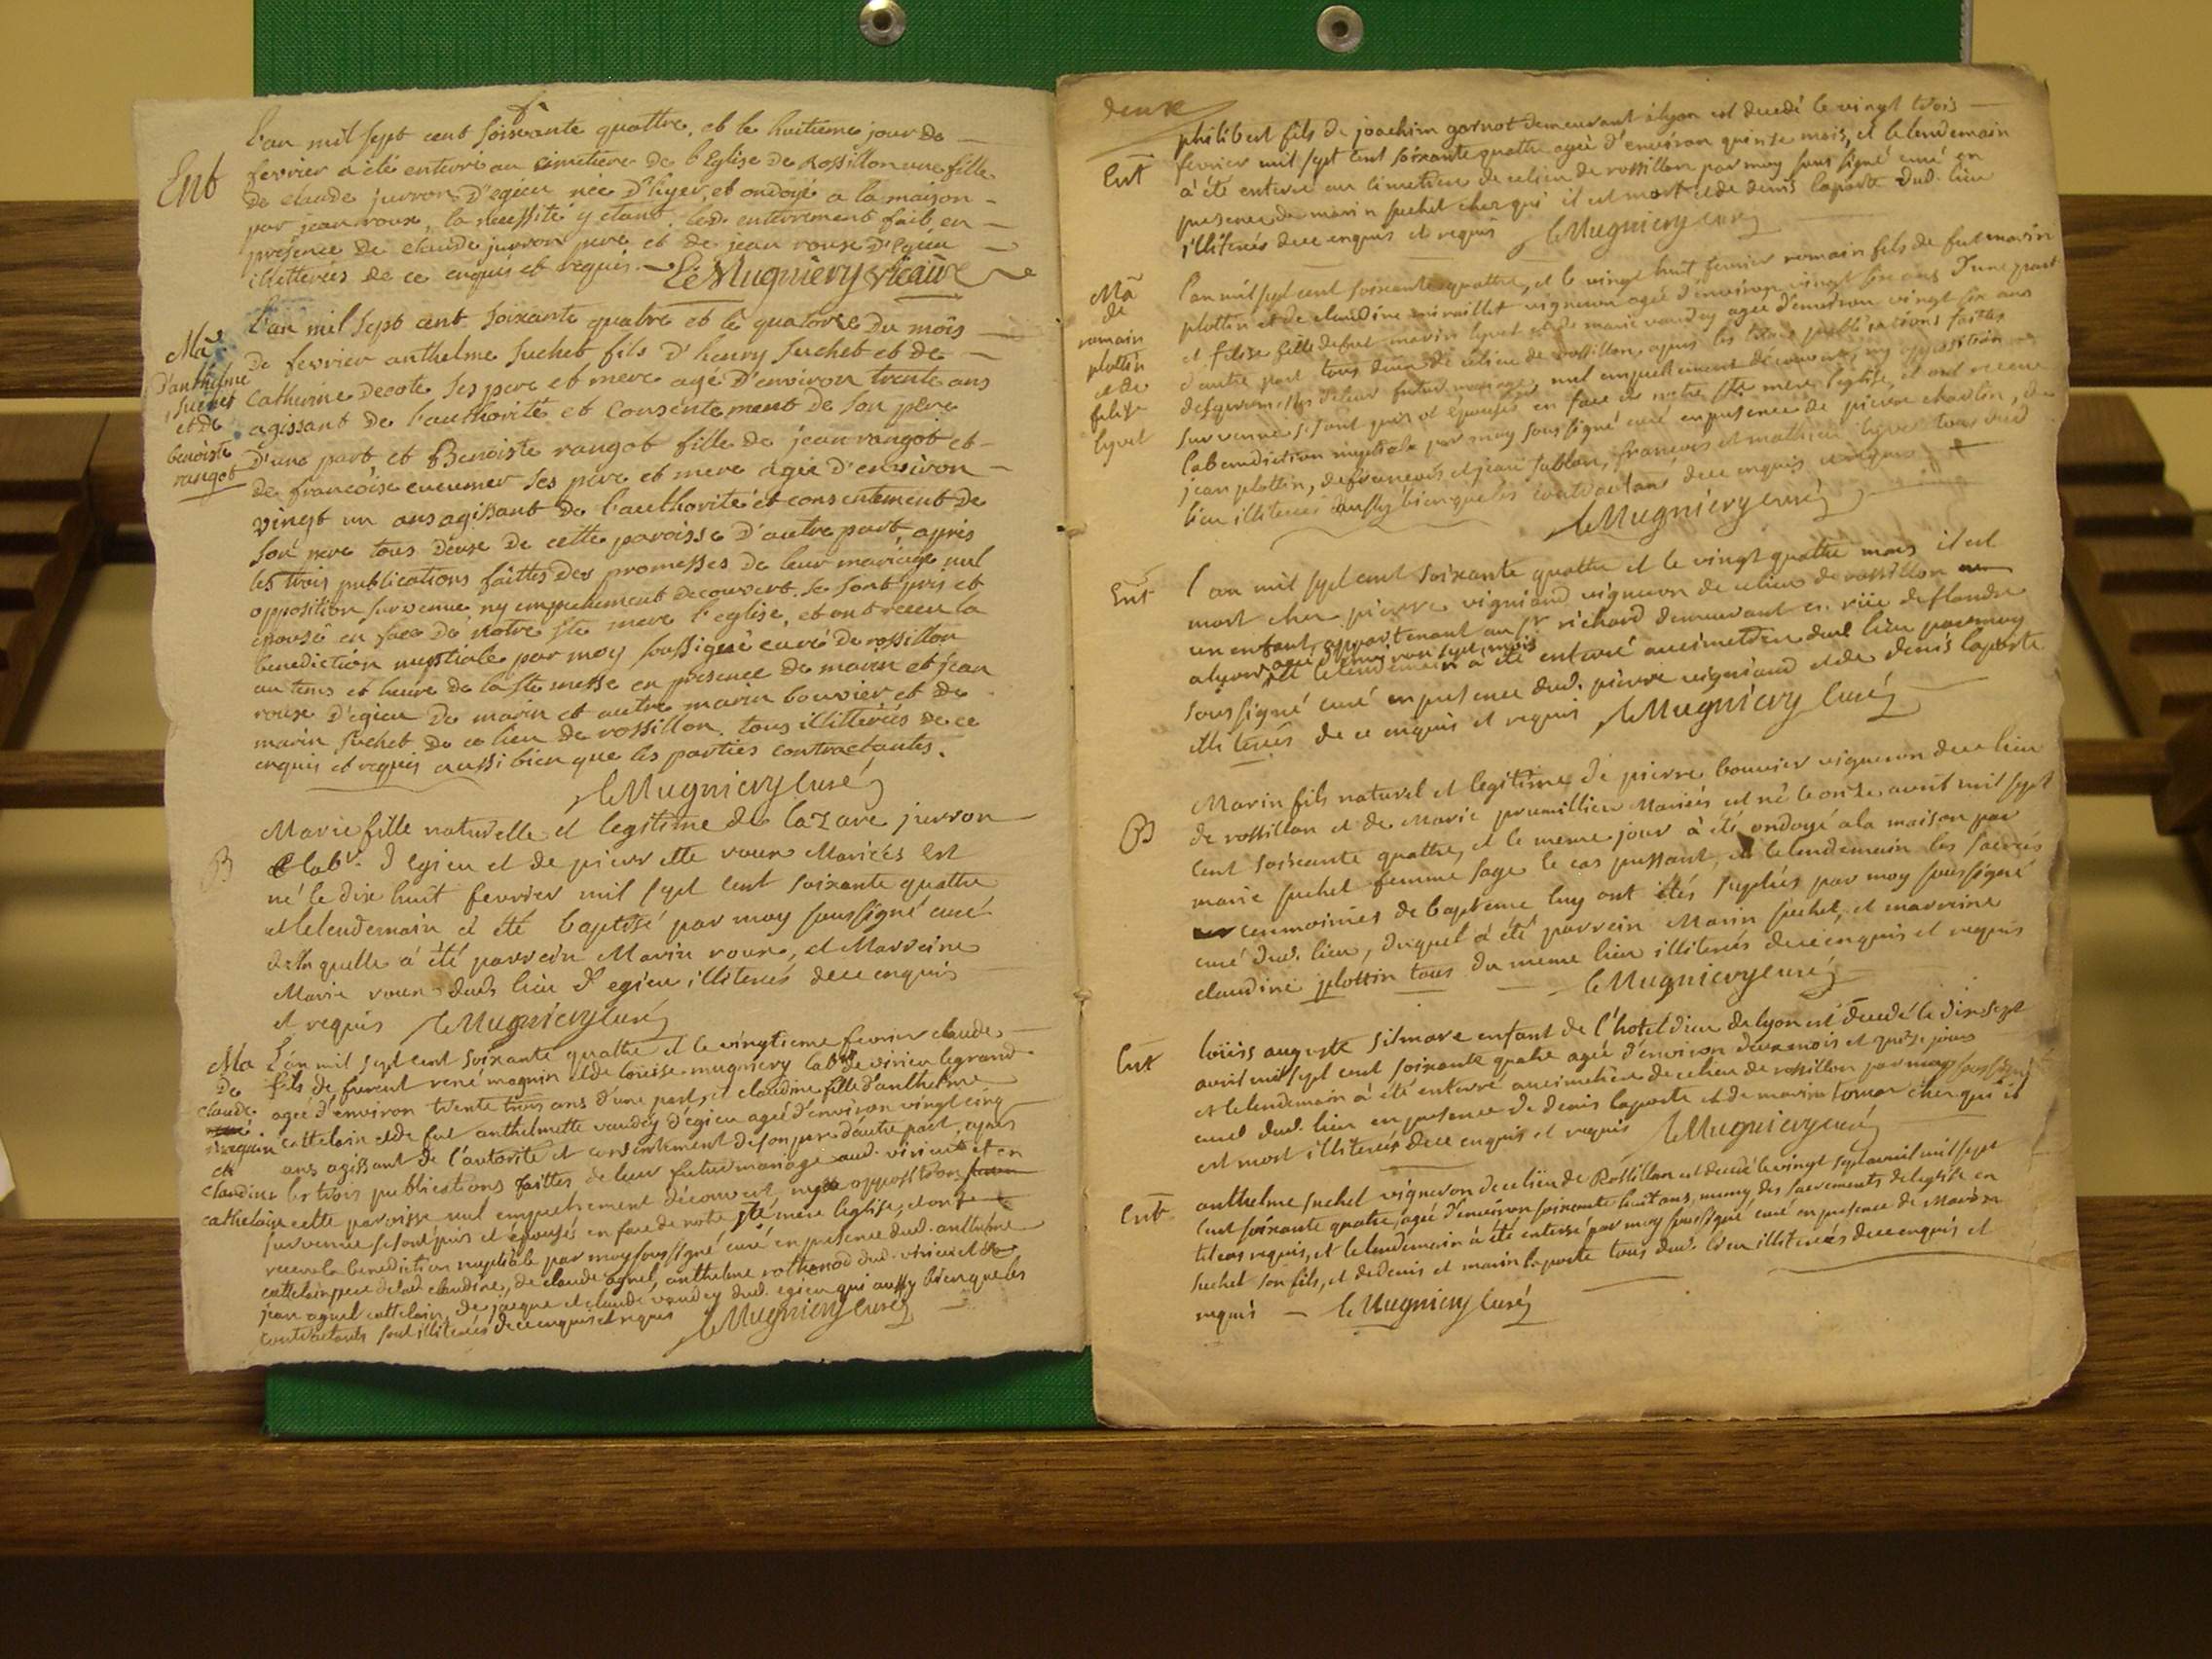 L'an mil sept cent soixante quattre, et le huitieme jour de
Ent
fevrier a été enterré au cimetiere de l'Eglise de Rossillon une fille
de claude juvron D'egieu née D'hyer, et ondoyé a la maison
par jean roux, la necessité y etant. led. enterrement fait en
présence de claude juvron pere et de jean roux D'Egieu
illitterés de ce enquis et requis. Le Mugniery Vicaire
L'an mil sept cent soixante quatre et le quatorse du mois
Ma
D'anthelme
suchet
et de
benoiste
rangot
de fevrier anthelme suchet fils d'henry suchet et de
Catherine Decote ses pere et mere agé D'environ trente ans
agissant de l'authorité et Consentement de son pere
D'une part et Benoiste rangot fille de jean rangot et
de francoise cucumer ses pere et mere agée d'environ
vingt un ans agissant de l'authorité et consentement de
son pere tous deux de cette paroisse D'autre part, apres
les trois publications faittes des promesses de leur mariage nul
opposition survenue ny empechement decouvert. se sont pris et
epousé en face de notre ste mere l'eglise, et ont receu la
benediction nuptiale par moy soussigné curé de rossillon
au tems et heure de la ste messe en presence de marin et jean
roux d'egieu de marin et autre marin bouvier et de
marin suchet de ce lieu de rossillon. tous illitterés de ce
enquis et requis aussi bien que les parties contractantes.
le Mugniery Curé
B
Marie fille naturelle et legitime de lazare juvron
labr. d'egieu et de pierrette roux Mariés est
né le dix huit fevrier mil sept cent soixante quattre
et le lendemain à été baptisé par moy soussigné curé
de laquelle à été parrein Marin roux, et Marreine
Marie roux dud. lieu d'egieu illiterés de ce enquis
et requis le Mugniery curé
Ma
De
claude
magnin
et
claudine
cattelain
L'an mil sept cent soixante quattre et le vingtieme fevrier claude
fils de furent rené magnin et de loüise mugniery labr de virieu le grand
ageé d'environ trente trois ans d'une part, et claudine fille d'anthelme
cattelain et de fut anthelmette vaudey d'egieu ageé d'environ vingt cinq
ans agissant de l'autorité et consentement de son pere d'autre part, apres
les trois publications faittes de leur futur mariage aud. virieu et en
cette paroisse nul empechement découvert, ny opposition
survenue se sont pris et épousés en face de notre ste mere l'eglise, et ont
receu la benediction nuptiale par moy soussigné curé en presence dud. anthelme
cattelain pere de lad. claudine, de claude agnel, anthelme rothonod dud. virieu et de
jean agnel cattelain, de jacque et claude vaudey dud. egieu qui aussy bien que les
contractants sont illiterés de ce enquis et requis le Mugniery curé
deux
philibert fils de joachim garnot demeurant à lyon est decedé le vingt trois
Ent
fevrier mil sept cent soixante quattre ageé d'environ quinze mois, et le lendemain
à été enterré au cimetiere de ce lieu de rossillon par moy sous signé curé en
presence de marin suchet chez qui il est mort et de denis laporte dud. lieu
illiterés de ce enquis et requis le Mugniery curé
Ma
de
romain
plottin
et de
felise
lyvet
l'an mil sept cent soixante quattre, et le vingt huit fevrier romain fils de fut marin
plottin et de claudine miraillet vigneron ageé d'environ vingt six ans d'une part
et felise fille de fut marin lyvet et de marie vaudey ageé d'environ vingt six ans
d'autre part tous deux de ce lieu de rossillon, apres les trois publications faittes
des promesses de leur futur mariage, nul empechement découvert, ny opposition
survenue se sont pris et epousés en face de notre ste mere l'eglise, et ont receu
la benediction nuptiale par moy soussigné curé en presence de pierre charlin, de
jean plottin, de francois et jean sublan, francois et mathieu lyvet tous dud.
lieu illiterés aussy bien que les contractans de ce enquis et requis
le Mugniery curé
Ent
l'an mil sept cent soixante quattre et le vingt quattre mars il est
mort chez pierre vigniand vigneron de ce lieu de rossillon
un enfant appartenant au sr richard demeurant en rüe de flandre
a lyon, ageé d'environ sept mois
et le lendemain à été enterré au cimetiere dud. lieu par moy
soussigné curé en presence dud. pierre vigniand et de denis laporte
illiterés de ce enquis et requis le Mugniery Curé
B
Marin fils naturel et legitime de pierre bouvier vigneron de ce lieu
de rossillon et de Marie prumillieu Mariés est né le onze avril mil sept
cent soixante quattre, et le meme jour à été ondoyé a la maison par
marie suchet femme sage le cas pressant, et le lendemain les sacrés
ceremoinies de baptême luy ont étés suplées par moy soussigné
curé dud. lieu, duquel à été parrein Marin suchet, et marreine
claudine plottin tous du meme lieu illiterés de ce enquis et requis
le Mugniery curé
Ent
loüis auguste silmare enfant de l'hotel dieu de lyon est decedé le dix sept
avril mil sept cent soixante quatre ageé d'environ deux mois et quinze jours
et le lendemain à été enterré au cimetiere de ce lieu de rossillon par moy soussigné
curé dud. lieu en presence de denis laporte et de marin tomar chez qui il
est mort illiterés de ce enquis et requis le Mugniery curé
Ent
anthelme suchet vigneron de ce lieu de Rossillon est decedé le vingt sept avril mil sept
cent soixante quatre, ageé d'environ soixante huit ans, muny des sacrements de leglise en
tel cas requis, et le lendemain à été enterré par moy soussigné curé en presence de Marin
suchet son fils, et de denis et marin laporte tous dud. lieu illiterés de ce enquis et
requis le Mugniery curé